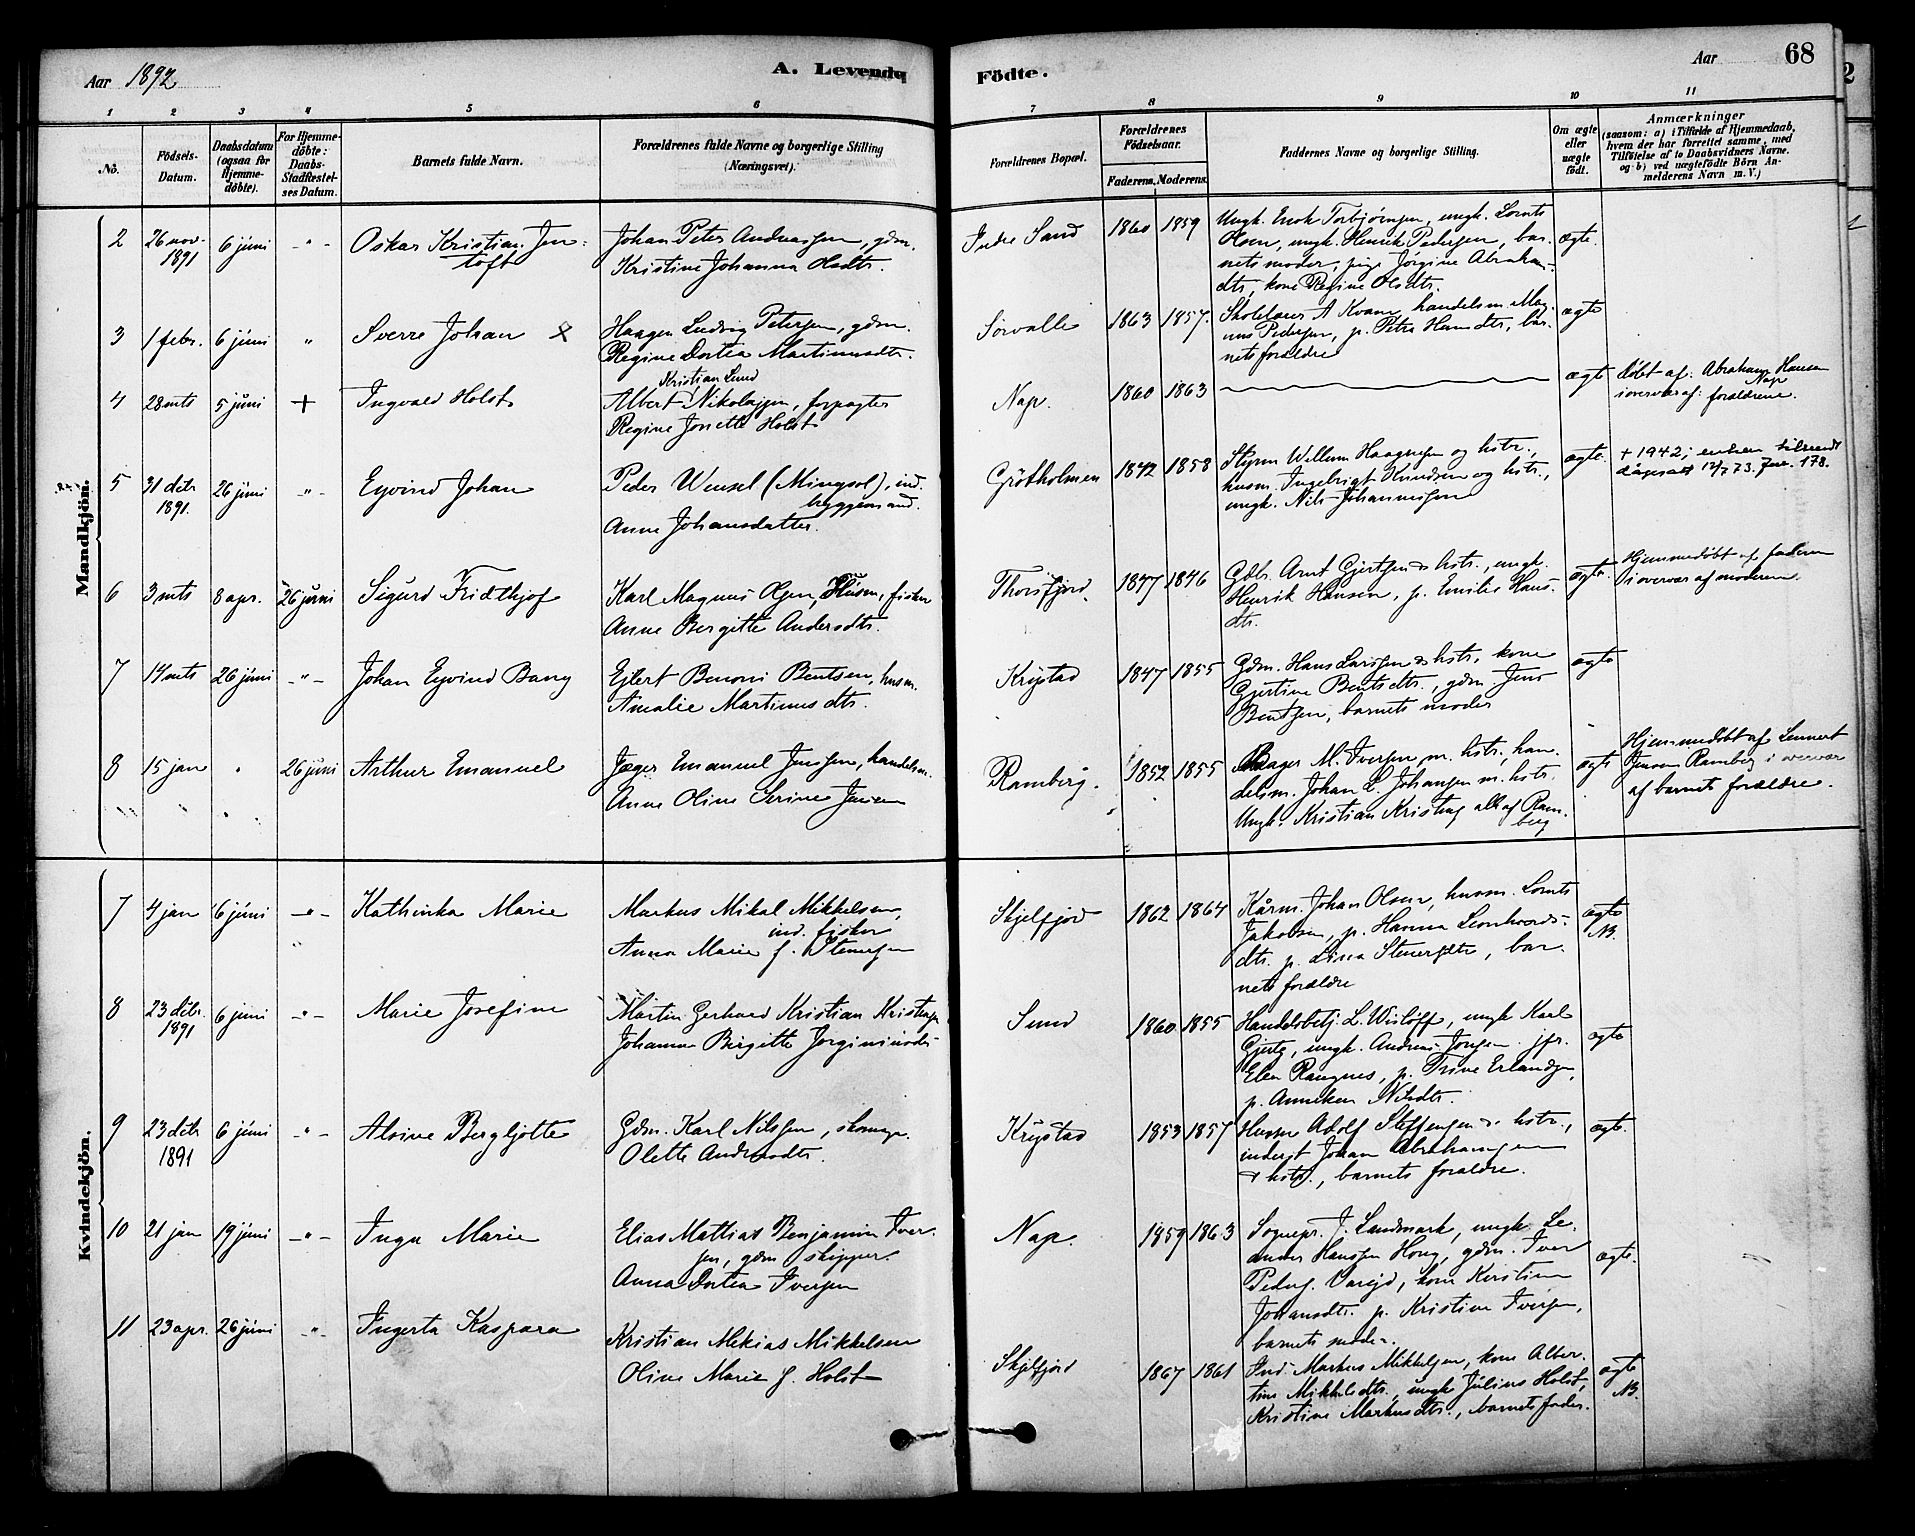 Aar 1892
A. Levende
Födte.
Aar
68
1 2 3 4 5 6 7 8 9 10 11
No.
Födsels-Datum.
Daabsdatum (ogsaa for Hjemme-döbte).
For Hjemme-döbte: Daabs-Stadfæstel-ses Datum.
Barnets fulde Navn.
Forældrenes fulde Navne og borgerlige Stilling
(Næringsvei).
Forældrenes Bopæl.
Forældrenes Födselsaar.
Faderens. Moderens.
Faddernes Navne og borgerlige Stilling.
Om ægte eller uægte födt.
Anmærkninger
(saasom: a) i Tilfælde af Hjemmedaab,
hvem der har forrettet samme, med
Tilföielse af to Daabsvidners Navne.
og b) ved uægtefödte Börn An-
melderens Navn m. V.)
Mandkjön.
2 26 nov. 1891 6 juni -"- Oskar Kristian Jen-
toft
Johan Peter Andreassen, gdm.
Kristine Johanna Olsdtr.
Indre Sand 1860 1859
Ungk. Enok Torbjörnsen, ungk. Lornts
Olsen, ungk. Henrik Pedersen, bar-
nets moder, pige Jörgine Abraham-
dtr, kone Regine Olsdtr.
ægte.
3 1 febr. 6 juni " Sverre Johan x
Haagen Ludvig Petersen, gdm.
Regine Dortea Martinusdtr.
Sörvalle 1863 1857.
Skolelærer A Kvam, handelsm. Mag-
nus Pedersen, p. Petra Hansdtr, bar-
nets forældre
ægte
4 28 mts 5 juni + Ingvald Holst
Kristian Lund
Albert Nikolajsen, forpagter
Regine Jonette Holst
Nap. 1860 1863
ægte
döbt af: Abraham Hansen
Nap
i overvær af: forældrene.
5 31 dcbr 1891. 26 juni -"- Eyvind Johan
Peder Wensel (Mingsol), ind.
byggemand.
Anne Johansdatter.
Grötholmen 1842 1858
Styrm Willum Haagensen og hstr.,
husm. Ingebrigt Knudsen og hstr.,
ungk. Nils Johannessen
ægte.
+ 1942; enken tilsendt
dåpsatt 12/7 73. Jnr. 178.
6 3 mts 8 apr. 26 juni Sigurd Fridthjof
Karl Magnus Olsen, Husm, fisker
Anne Bergitte Andersdtr.
Thorsfjord. 1847 1846
Gdbr. Arnt Gjertsen & hstr., ungk.
Henrik Hansen, p. Emilie Hans-
dtr.
ægte.
Hjemmedöbt af faderen
i overvær af moderen.
7 14 mts 26 juni -"- Johan Eyvind Bang
Ejlert Benoni Bentsen, husm.
Amalie Martinusdtr.
Krystad 1847 1855
Gdm. Hans Larssen & hstr., kone
Gjertine Bentsdtr., gdm. Jens
Bentsen, barnets moder
ægte
8 15 jan " 26 juni Arthur Emanuel
Jæger Emanuel Jenssen, handelsm.
Anne Oline Serine Jensen
Ramberg. 1852 1855
Bager M. Iversen m. hstr., han-
delsm. Johan L. Johansen m. hstr.
Ungk. Kristian Kristens. alle af Ram-
berg
ægte
Hjemmedöbt af Lennert
Jensen Ramberg i overvær
af barnets forældre.
Kvindekjön.
7 4 jan 6 juni -"- Kathinka Marie
Markus Mikal Mikkelsen,
ind. fisker
Anna Marie f. Stenersen
Skjelfjord 1862 1864
Kårm. Johan Olsen, husm. Lornts
Jakobsen, p. Hanna Leonhards-
dtr. p. Lina Stenersdtr, bar-
nets forældre
ægte
NB.
8 23 dcbr. 1891 6 juni -"- Marie Josefine
Martin Gerhard Kristian Kristens.
Johanna Birgitte Jorginisdr.
Sund 1860 1855
Handelsbetj. L. Wislöff, ungk Karl
Gjerts., ungk. Andreas Jonsen jfr.
Elen Rangnes, p. Trine Erlandsen,
p. Anneken Nilsdtr.
ægte
9 23 dcbr 1891 6 juni -"- Alvine Bergljotte
Gdm. Karl Nilssen, skomag.
Olette Andreasdtr.
Krystad 1853 1857
Husm Adolf Steffensen & hstr.,
inderst Johan Abrahamsen
& hstr., barnets forældre.
ægte.
10 21 jan 19 juni -"- Inga Marie
Elias Mattias Benjamin Iver-
sen, gdm skipper.
Anna Dortea Iversen
Nap. 1859 1863
Sognepr. J. Landmark, ungk. Le-
ander Hanssen Horig, gdm. Iver
Peders. Vareid, kone Kirstine
Johansdtr. p. Kristine Iversen,
barnets moder.
ægte.
11 23 apr. 26 juni -"- Ingerta Kaspara
Kristian Mekias Mikkelsen
Oline Marie f. Holst
Skjelfjord 1867 1861
Ind. Markus Mikkelsen, kone Alber-
tine Mikkelsdtr., ungk Julius Holst,
Kristine Markusdtr., barnets fader.
ægte
NB.